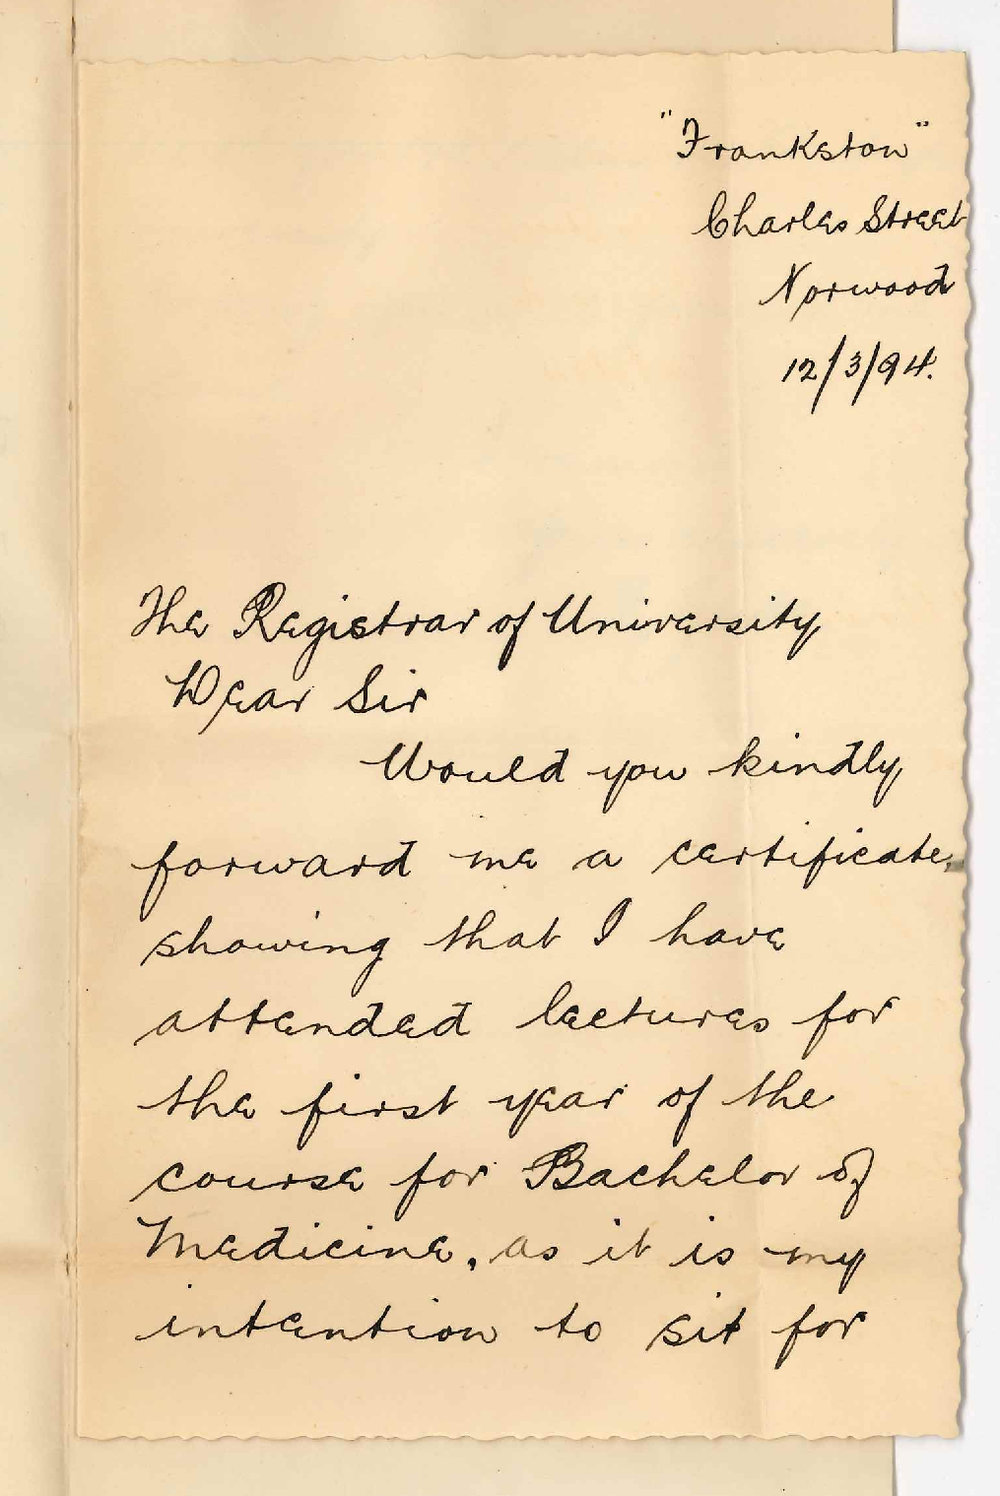 "Frankston"
Charles Street
Norwood
12/3/94.
The Registrar of University
Dear Sir
Would you kindly
forward me a certificate,
showing that I have
attended lectures for
the first year of the
course for Bachelor of
Medicine, as it is my
intention to sit for